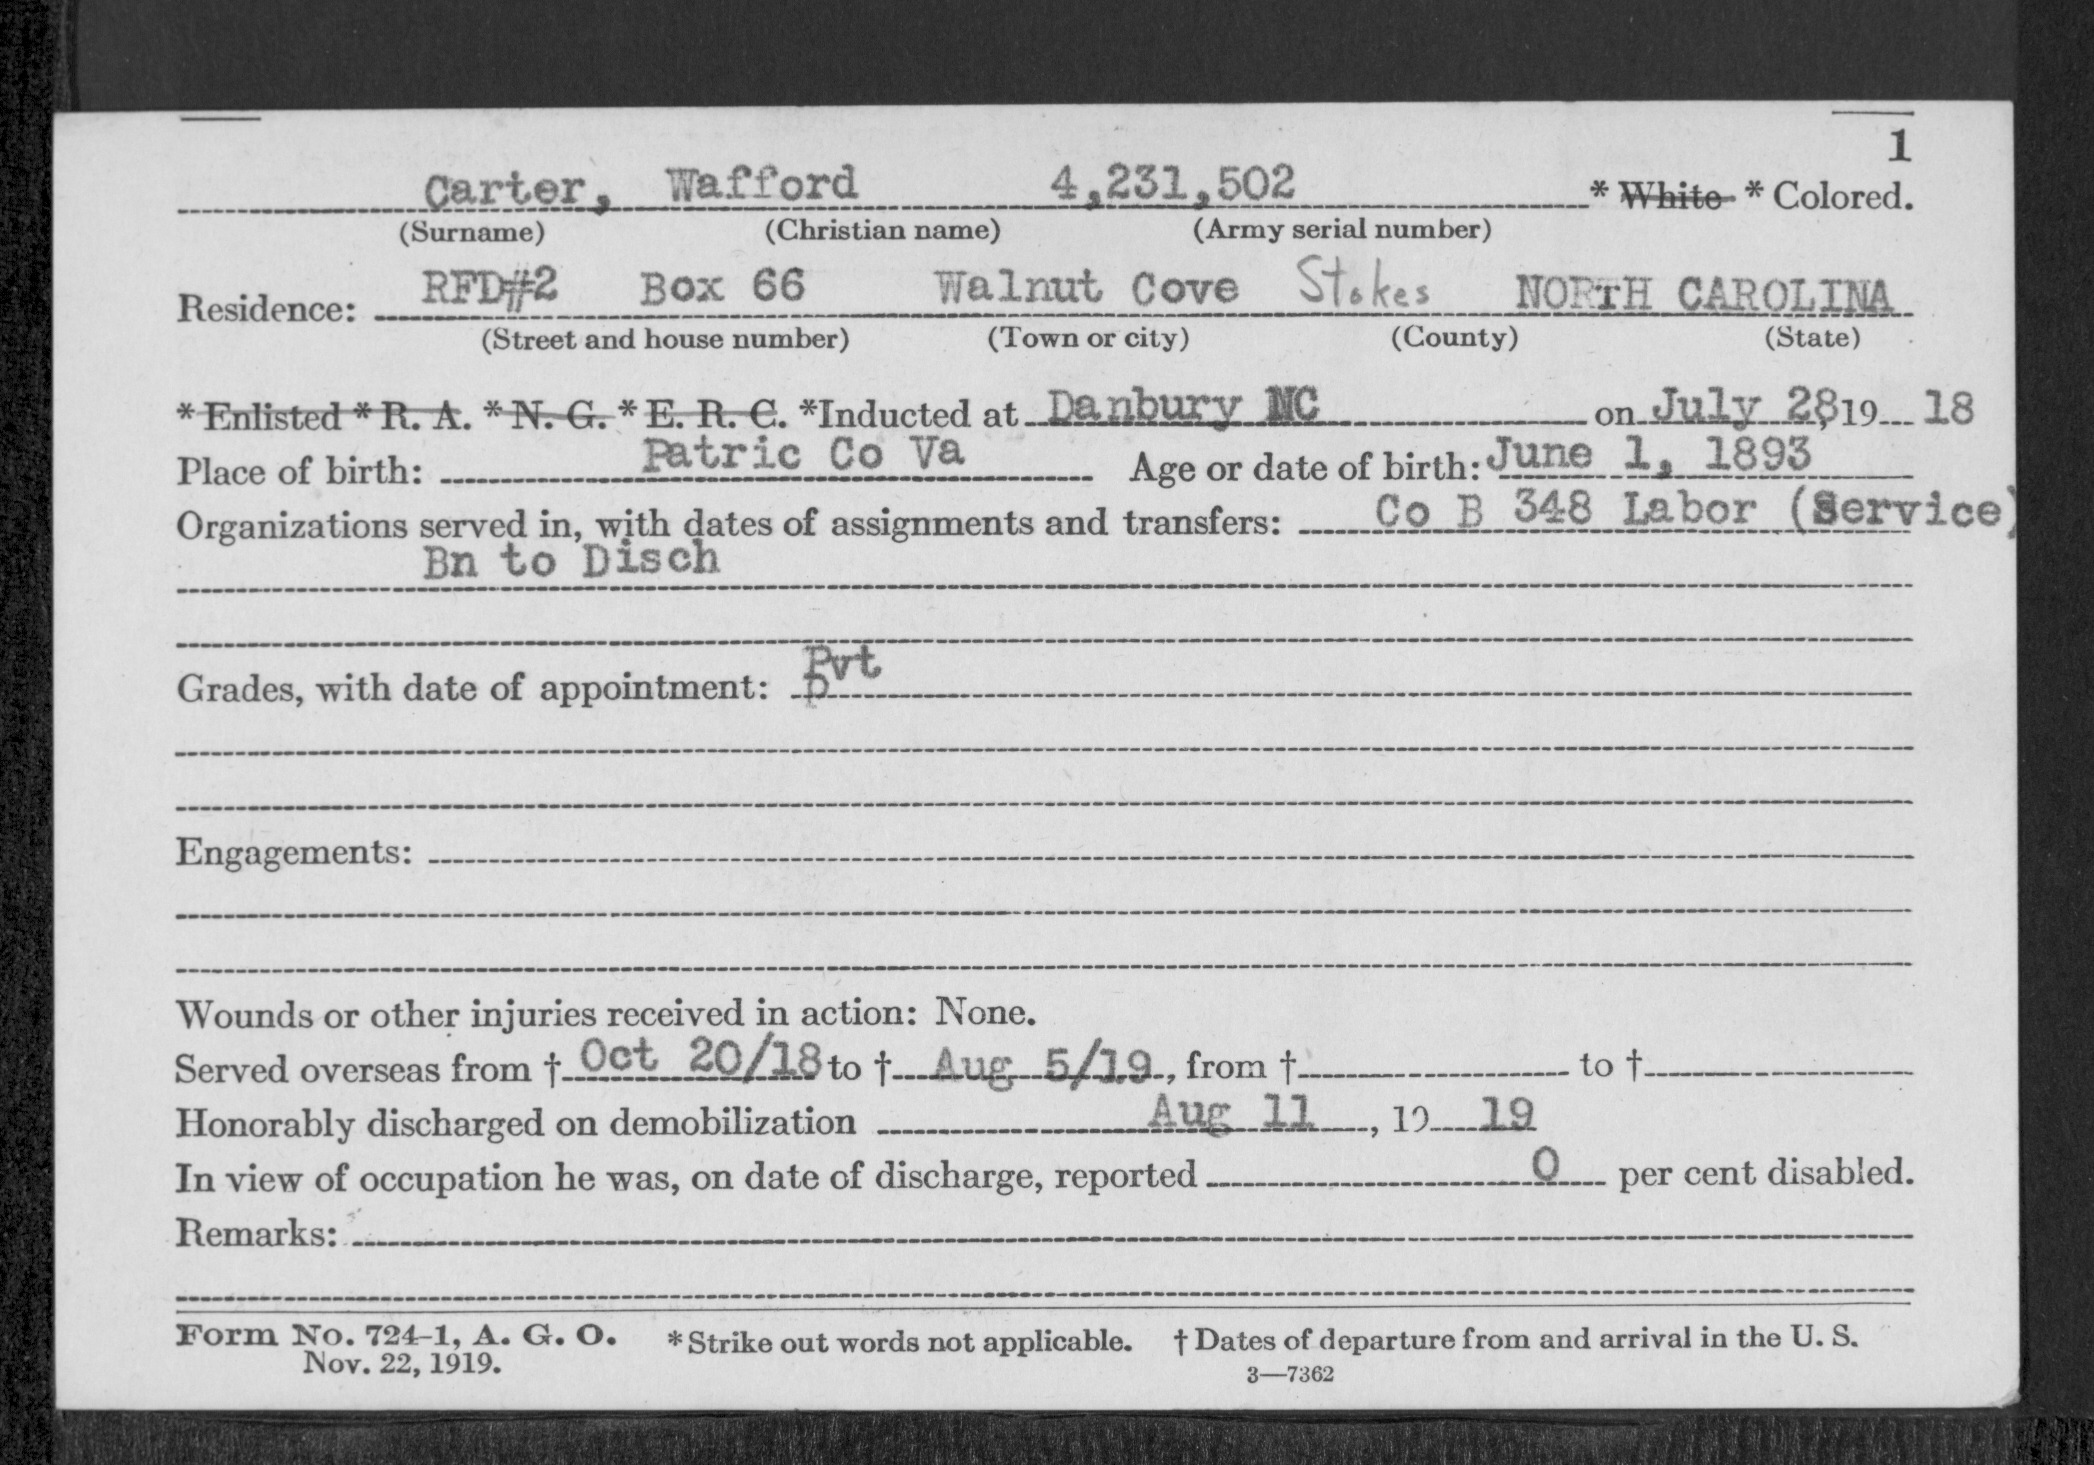 1
Carter, Wafford 4,231,502 * White * Colored.
(Surname) (Christian name) (Army serial number)
Residence: RFD#2 Box 66 Walnut Cove Stokes NORTH CAROLINA
(Street and house number) (Town or city) (County) (State)
* Enlisted * R. A. * N. G. * E. R. C. *Inducted at Danbury NC on July 28, 19 18
Place of birth: Patric Co Va Age or date of birth: June 1, 1893
Organizations served in, with dates of assignments and transfers: Co B 348 Labor (Service)
Bn to Disch
Grades, with date of appointment: Pvt
Engagements:
Wounds or other injuries received in action: None.
Served overseas from † Oct 20/18 to † Aug 5/19, from † to †
Honorably discharged on demobilization Aug 11, 19 19
In view of occupation he was, on date of discharge, reported 0 per cent disabled.
Remarks:
Form No. 724-1, A. G. O. * Strike out words not applicable. † Dates of departure from and arrival in the U. S.
Nov. 22, 1919.
3—7362